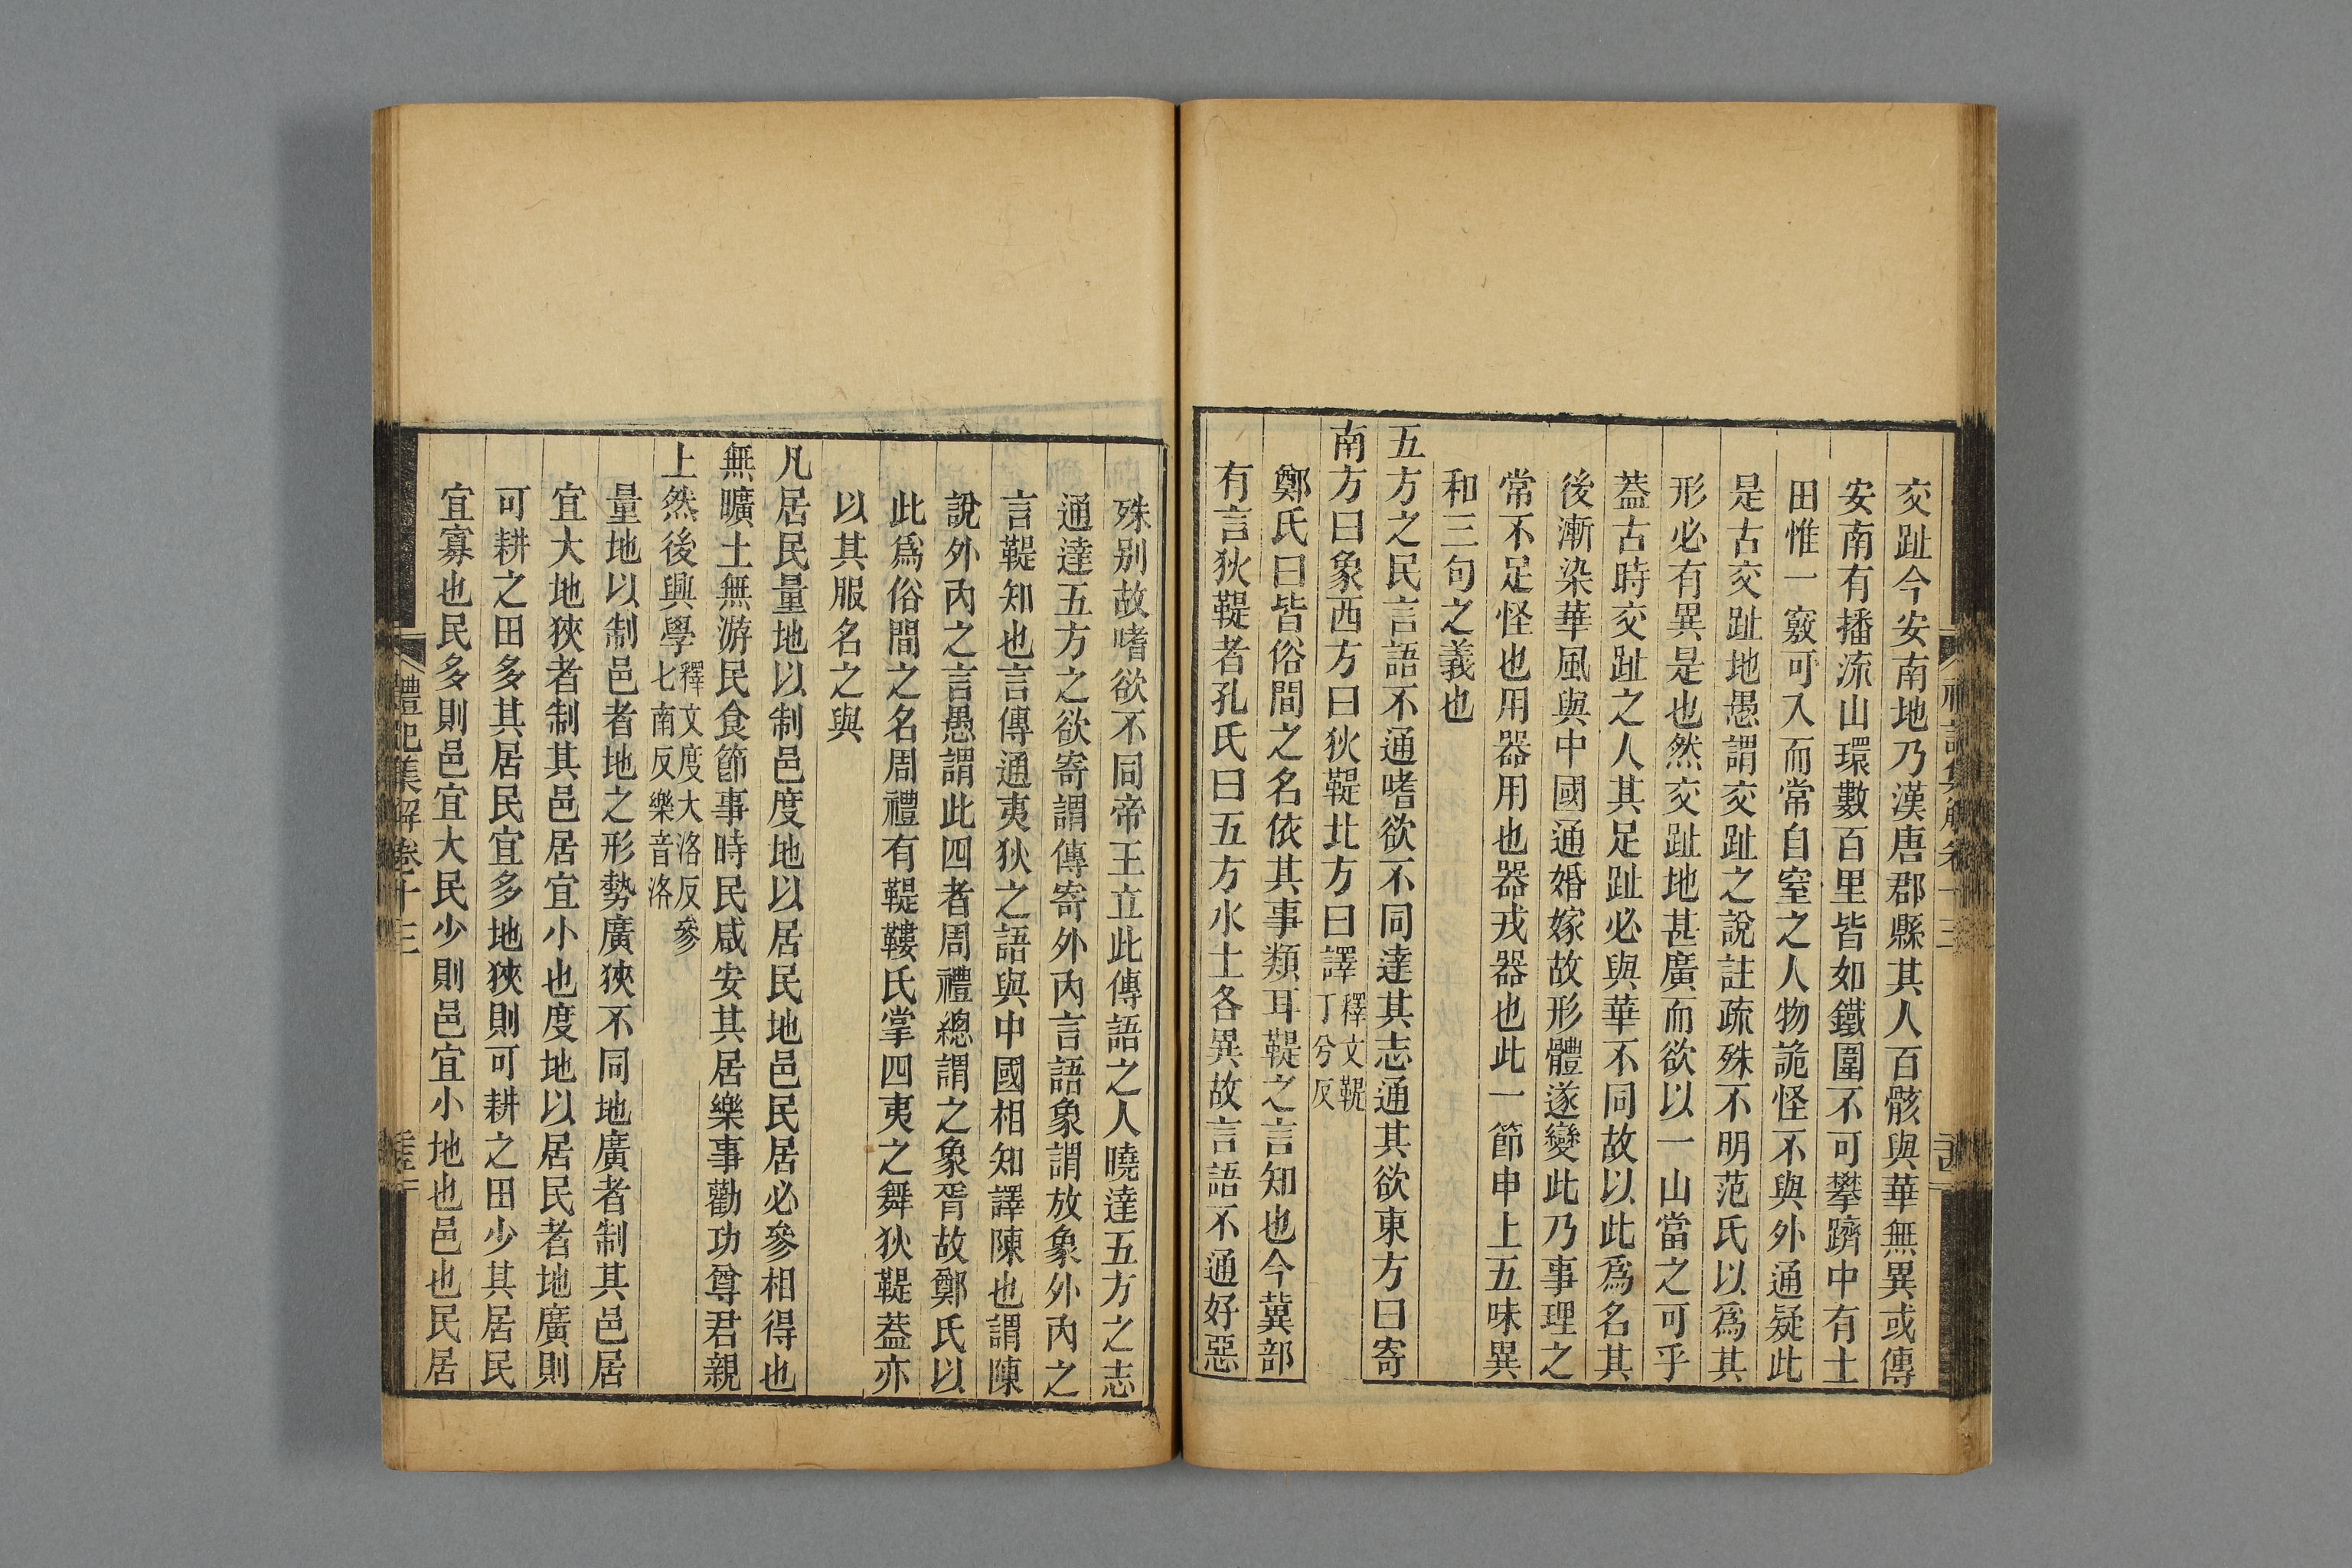 交趾今安南地乃漢唐郡縣其人百骸與華無異或傳
安南有播流山環數百里皆如鐵圍不可攀躋中有土
田惟一竅可入而常自窒之人物詭怪不與外通疑此
是古交趾地愚謂交趾之說註疏殊不明范氏以爲其
形必有異是也然交趾地甚廣而欲以一山當之可乎
葢古時交趾之人其足趾必與華不同故以此爲名其
後漸染華風與中國通婚嫁故形體遂變此乃事理之
常不足怪也用器用也器戎器也此一節申上五味異
和三句之義也
五方之民言語不通嗜欲不同達其志通其欲東方曰寄
南方曰象西方曰狄鞮北方曰譯釋文鞮丁兮反
鄭氏曰皆俗間之名依其事類耳鞮之言知也今冀部
有言狄鞮者孔氏曰五方水土各異故言語不通好惡
殊别故嗜欲不同帝王立此傳語之人曉達五方之志
通達五方之欲寄謂傳寄外內言語象謂放象外內之
言鞮知也言傳通夷狄之語與中國相知譯陳也謂陳
說外內之言愚謂此四者周禮總謂之象胥故鄭氏以
此爲俗間之名周禮有鞮鞻氏掌四夷之舞狄鞮葢亦
以其服名之與
凡居民量地以制邑度地以居民地邑民居必參相得也
無曠土無游民食節事時民咸安其居樂事勸功尊君親
上然後興學釋文度大洛反參七南反樂音洛
量地以制邑者地之形勢廣狹不同地廣者制其邑居
宜大地狹者制其邑居宜小也度地以居民者地廣則
可耕之田多其居民宜多地狹則可耕之田少其居民
宜寡也民多則邑宜大民少則邑宜小地也邑也民居
禮記集解卷十三